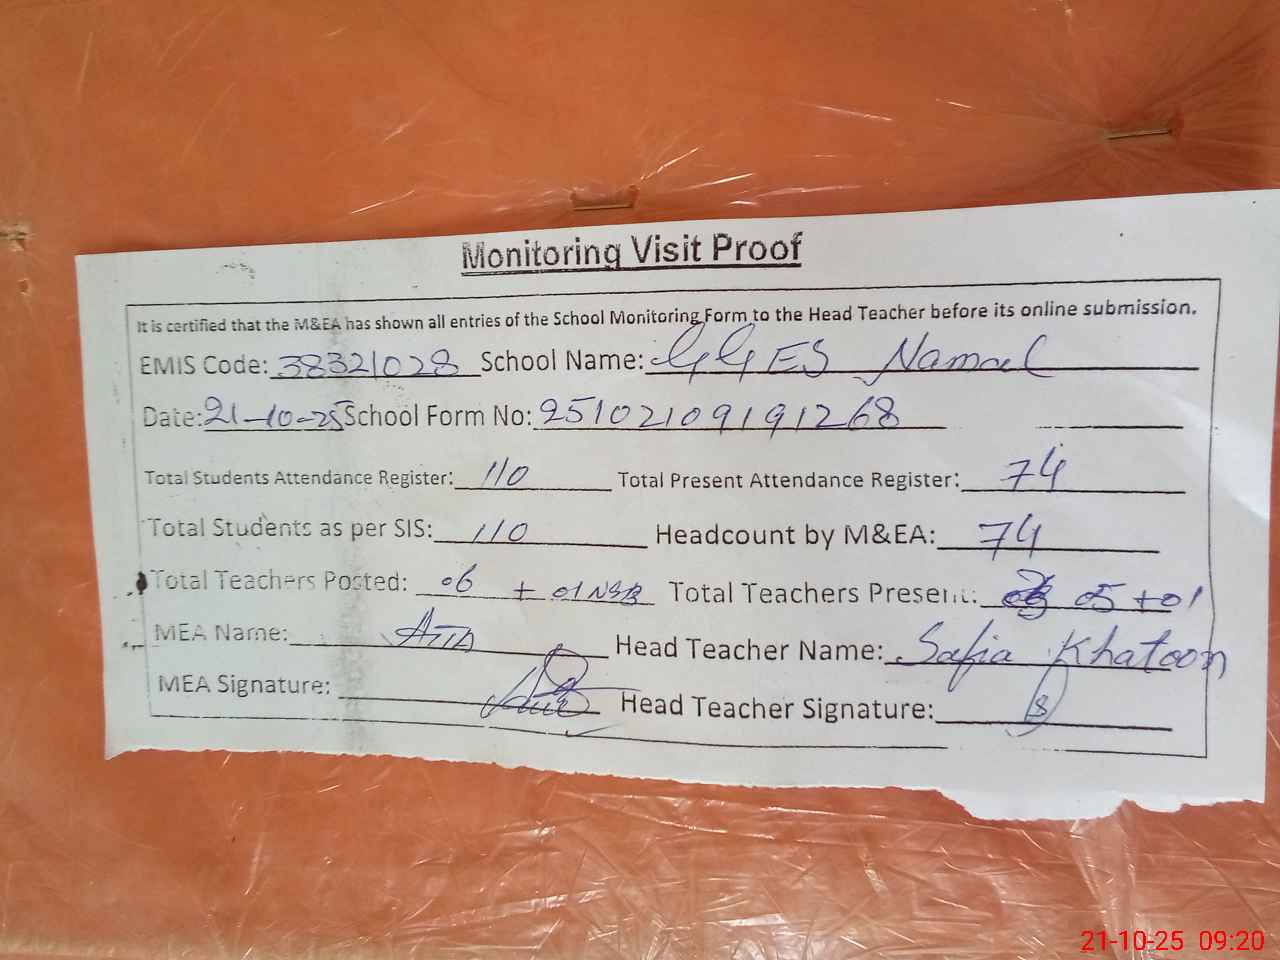 Monitoring Visit Proof
It is certified that the M&EA has shown all entries of the School Monitoring Form to the Head Teacher before its online submission.
EMIS Code: 38321028 School Name: GGES Namal
Date: 21-10-25 School Form No: 25102109191268
Total Students Attendance Register: 110 Total Present Attendance Register: 74
Total Students as per SIS: 110 Headcount by M&EA: 74
Total Teachers Posted: 06 + 01 NSB Total Teachers Present: 05 + 01
MEA Name: Atta Head Teacher Name: Safia Khatoon
MEA Signature: Head Teacher Signature:
21-10-25 09:20